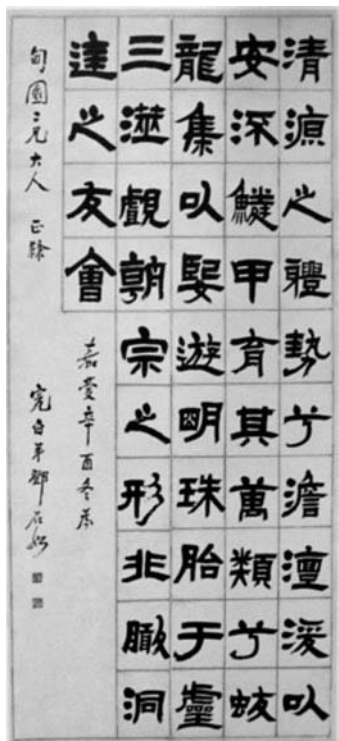 清源之體勢兮澹澶湲以
安深鱗甲育其萬類兮蛟
龍集以嬉遊明珠胎于靈
三澨觀朝宗之形兆瞰洞
達之交會
嘉慶辛酉冬為
旬園二兄大人 正隸
完白弟鄧石如